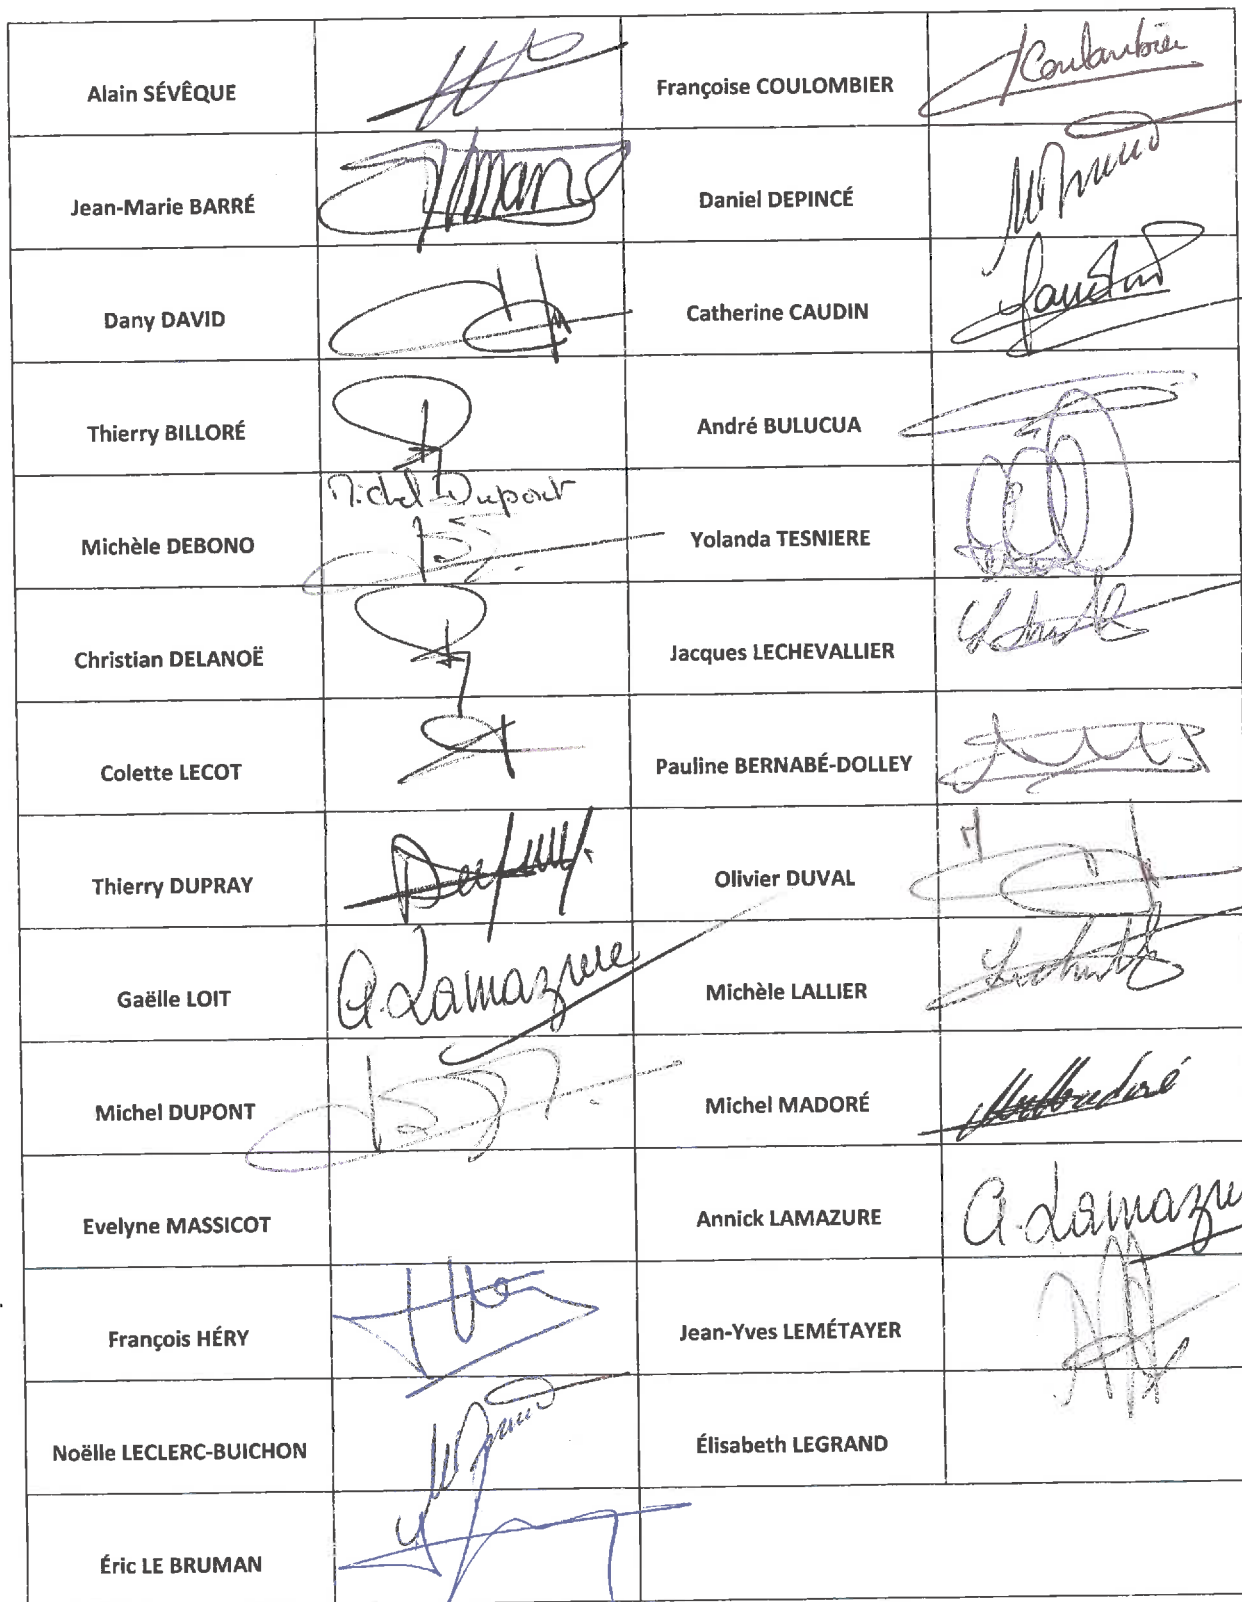 Alain SÉVÊQUE
Françoise COULOMBIER
Coulombier
Jean-Marie BARRÉ
Daniel DEPINCÉ
Dany DAVID
Catherine CAUDIN
Caudin
Thierry BILLORÉ
André BULUCUA
Michel Dupont
Michèle DEBONO
Yolanda TESNIERE
Christian DELANOË
Jacques LECHEVALLIER
Colette LECOT
Pauline BERNABÉ-DOLLEY
Thierry DUPRAY
Olivier DUVAL
Gaëlle LOIT
A. Lamazure
Michèle LALLIER
Michel DUPONT
Michel MADORÉ
Madoré
Evelyne MASSICOT
Annick LAMAZURE
A. Lamazure
François HÉRY
Jean-Yves LEMÉTAYER
Noëlle LECLERC-BUICHON
Élisabeth LEGRAND
Éric LE BRUMAN